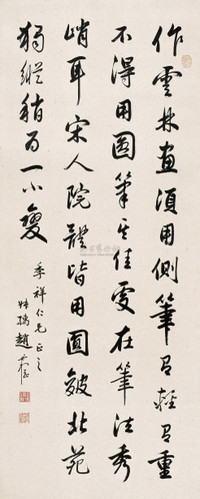 作雲林畫須用側筆有輕有重
不得用圓筆其佳處在筆法秀
峭耳宋人院體皆用圓皴北苑
獨縱稍為一小變
季祥仁兄正之
叔孺趙時棡